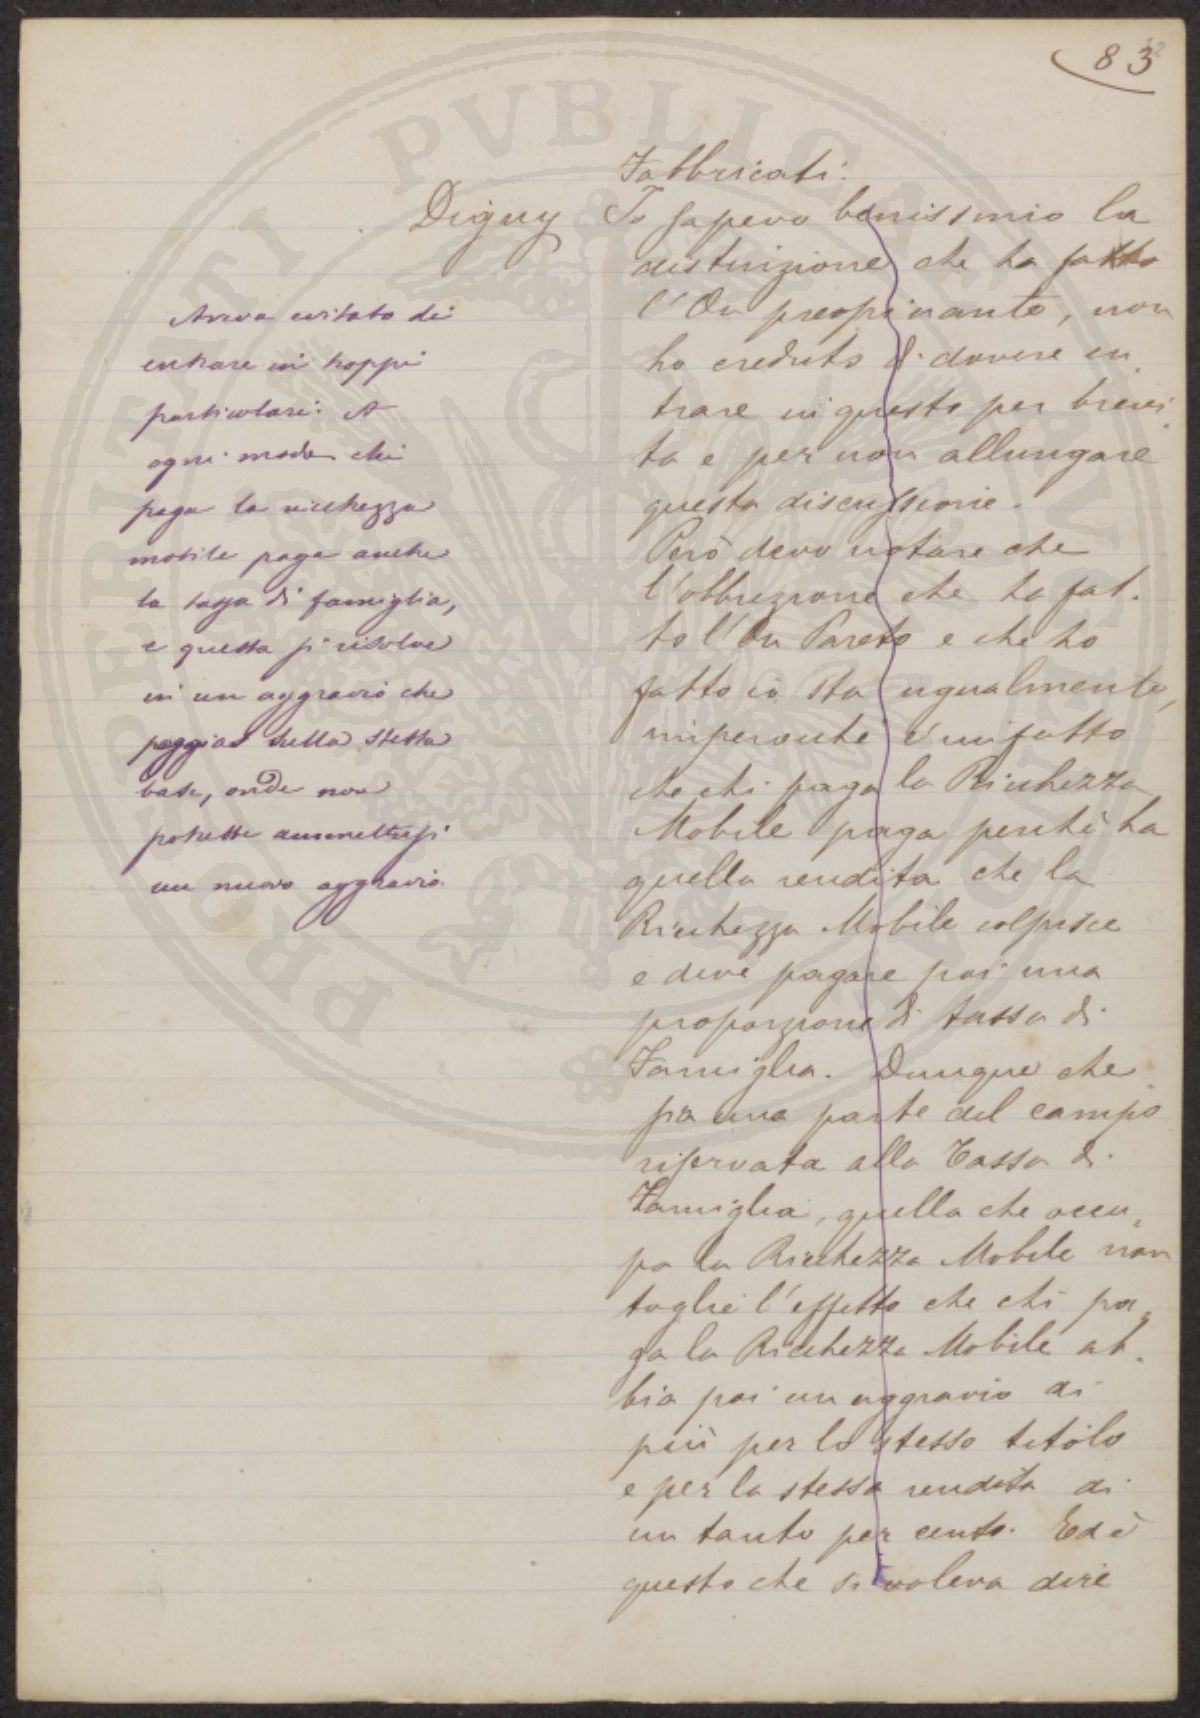 83
Fabbricati.
Digny Io sapevo benissimo la
distinzione che ha fatto
l'On preopinante, non
ho creduto di dovere en
trare in questo per brevi
ta e per non allungare
questa discussione.
Però devo notare che
l'obbiezione che ha fat-
to l'On Pareto e che ho
fatto io sta ugualmente,
imperocché è un fatto
che chi paga la Ricchezza
Mobile paga perché ha
quella rendita che la
Ricchezza Mobile colpisce
e deve pagare poi una
proporzione di tassa di
Famiglia. Dunque che
fra una parte del campo
riservata alla Tassa di
Famiglia, quella che occu
pa la Ricchezza Mobile non
toglie l'effetto che chi pa
ga la Ricchezza Mobile ab-
bia poi un aggravio di
più per lo stesso titolo
e per la stessa rendita di
un tanto per cento. Ed è
questo che si voleva dire
Aveva evitato di
entrare in troppi
particolari. A
ogni modo chi
paga la ricchezza
mobile paga anche
la tassa di famiglia,
e questa si risolve
in un aggravio che
poggia sulla stessa
base, onde non
potrebbe ammettersi
un nuovo aggravio.
PROPERITATI PVBLICAE